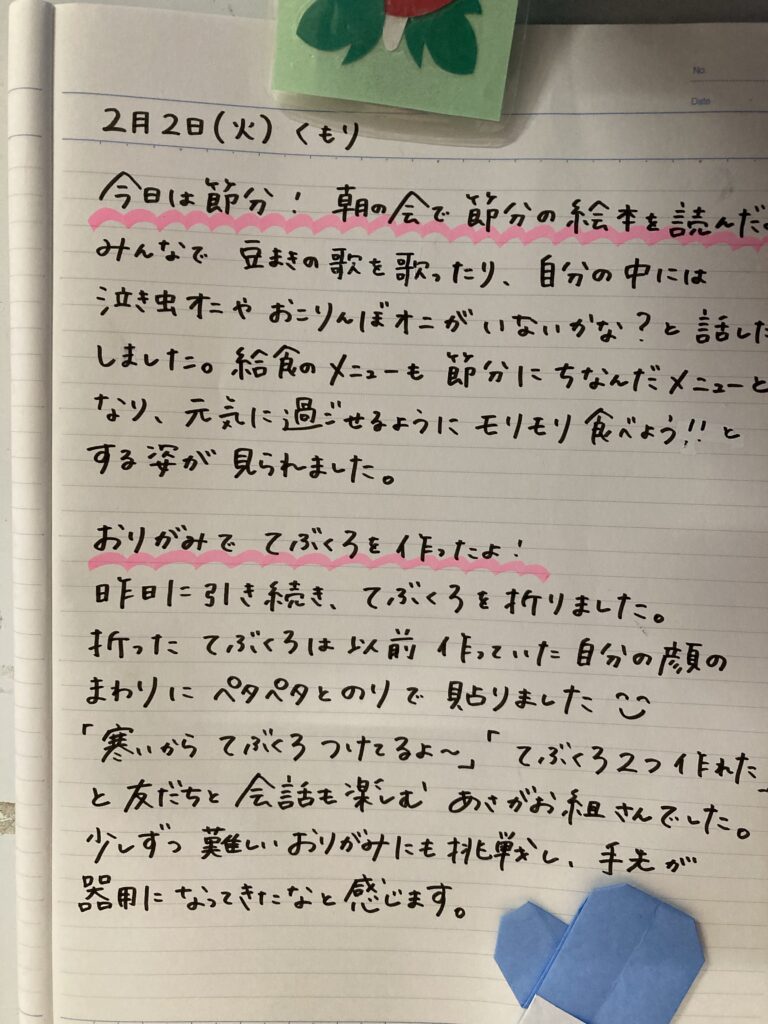 No.
Date
2月2日(火) くもり
今日は節分! 朝の会で 節分の絵本を読んだ。
みんなで 豆まきの歌を歌ったり、自分の中には
泣き虫オニや おこりんぼオニが いないかな?と 話した
しました。給食のメニューも 節分に ちなんだメニューと
なり、元気に過ごせるように モリモリ 食べよう!!と
する姿が 見られました。
おりがみで てぶくろを作ったよ!
昨日に引き続き、てぶくろを折りました。
折った てぶくろは 以前 作っていた自分の顔の
まわりに ペタペタとのりで 貼りました
「寒いから てぶくろ つけてるよ〜」「てぶくろ2つ作れた」
と 友だちと 会話も楽しむ あさがお組さんでした。
少しずつ 難しいおりがみにも挑戦し、手先が
器用に なってきたなと感じます。